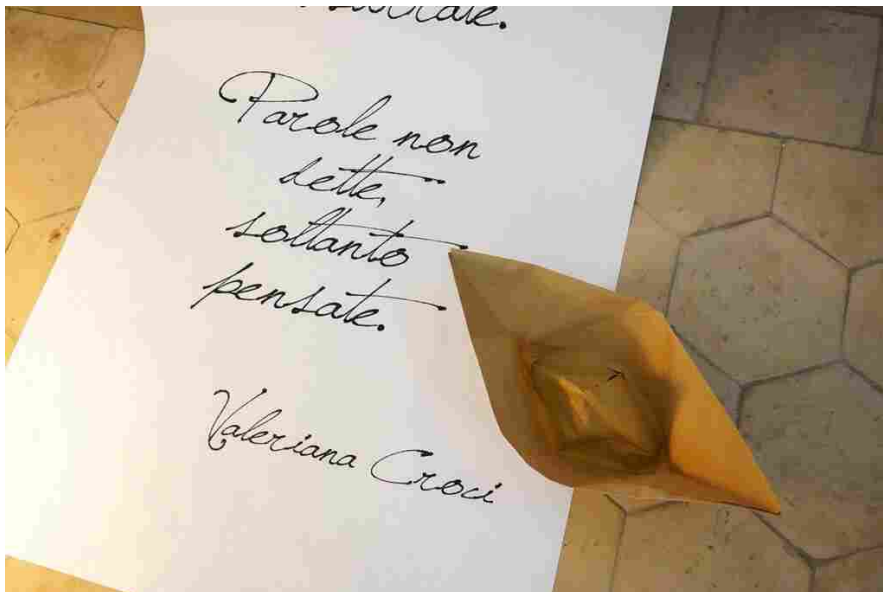 Parole non
dette,
soltanto
pensate.
Valeriana Croci